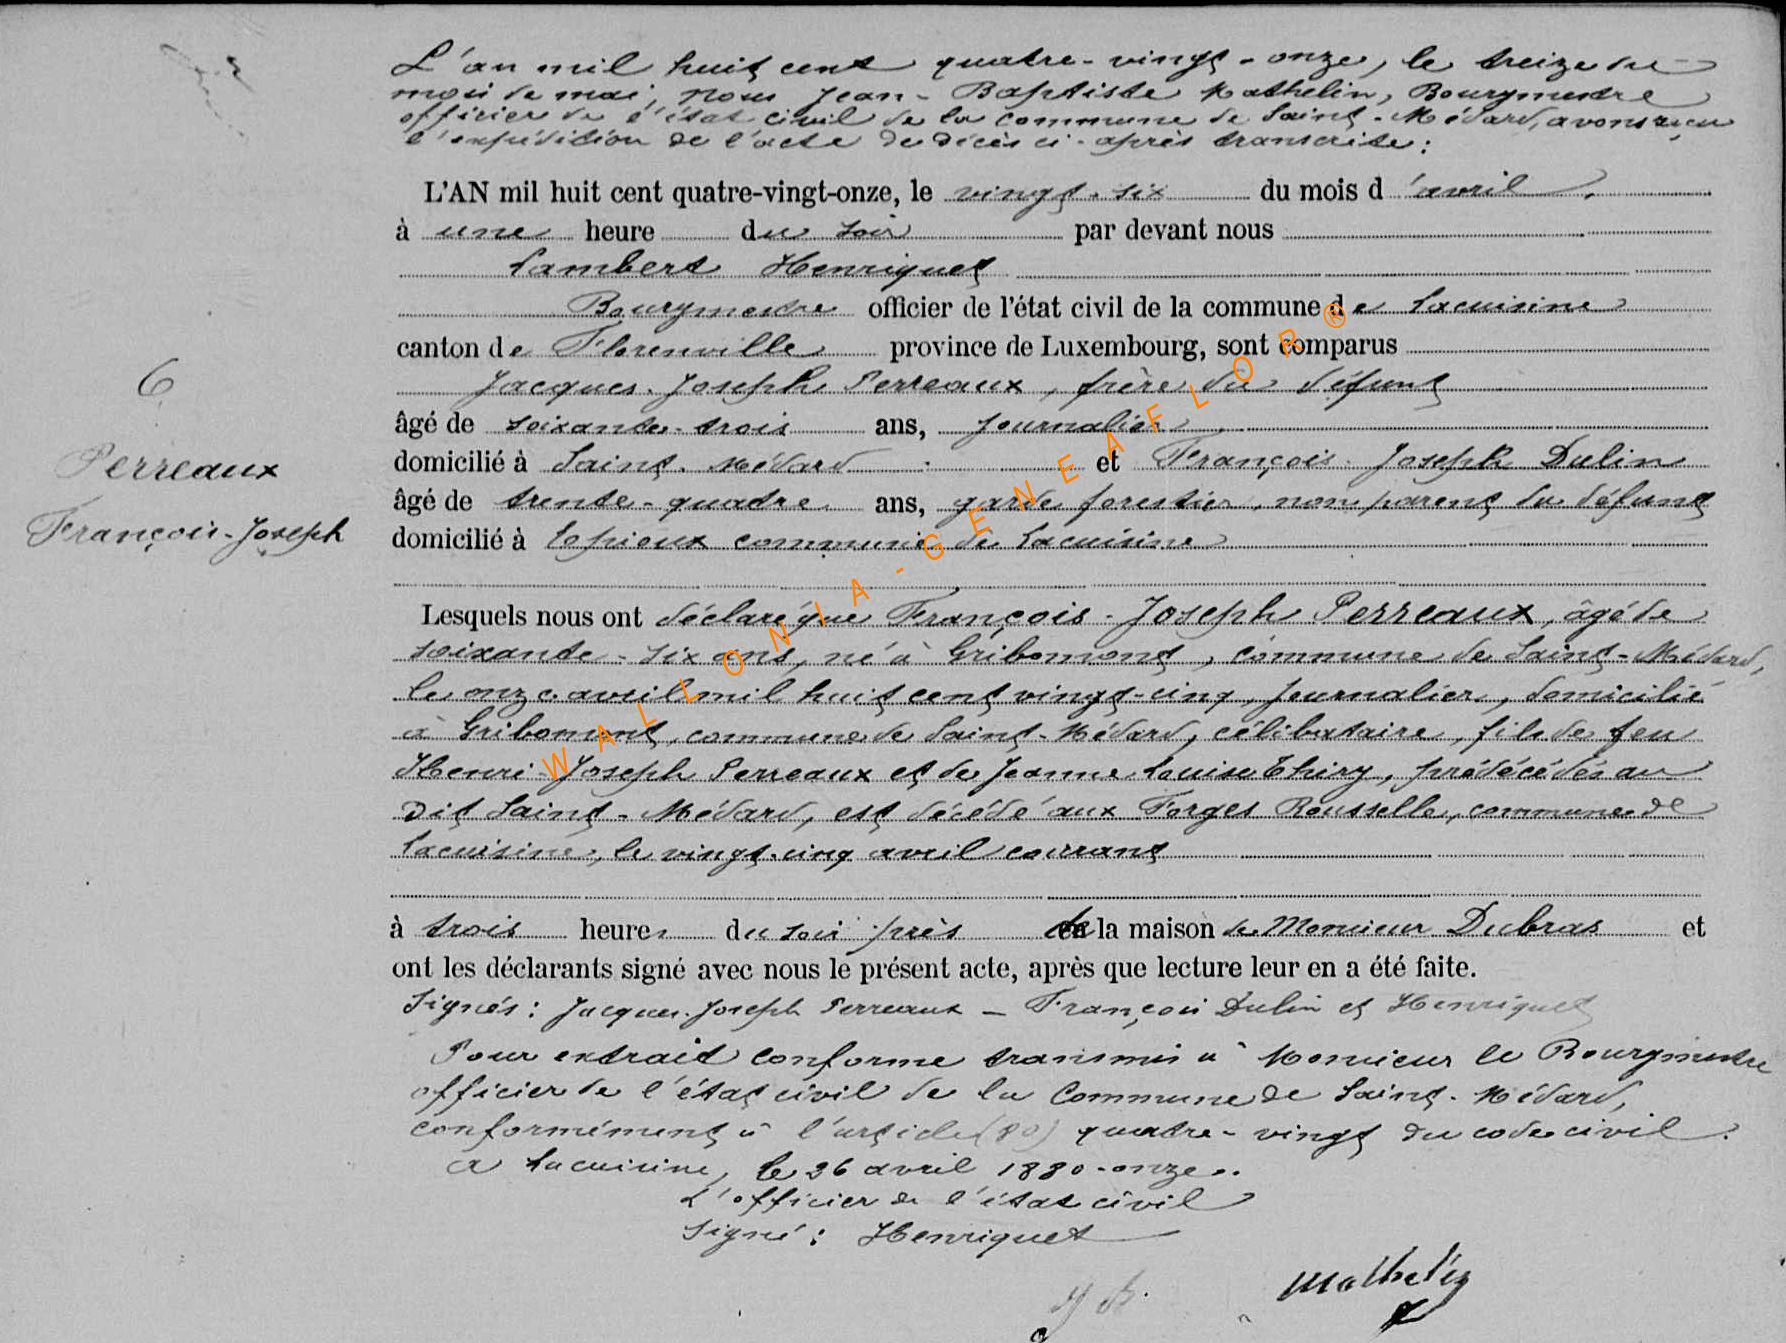 L'an mil huit cent quatre-vingt-onze, le treize du
mois de mai, nous Jean-Baptiste Mathelin, Bourgmestre
officier de l'état civil de la commune de Saint-Médard, avons reçu
l'expédition de l'acte de décès ci-après transcrite :
L'AN mil huit cent quatre-vingt-onze, le vingt-six du mois d'avril,
à une heure du soir par devant nous
Lambert Henriquet
Bourgmestre officier de l'état civil de la commune de Lacuisine
canton de Florenville province de Luxembourg, sont comparus
6
Jacques-Joseph Perreaux, frère du défunt
âgé de soixante-trois ans, journalier,
domicilié à Saint-Médard et François-Joseph Dulin
Perreaux
âgé de trente-quatre ans, garde forestier, non parent du défunt
François-Joseph
domicilié à Epioux commune de Lacuisine
Lesquels nous ont déclaré que François-Joseph Perreaux, âgé de
soixante-six ans, né à Gribomont, commune de Saint-Médard,
le onze avril mil huit cent vingt-cinq, journalier, domicilié
à Gribomont, commune de Saint-Médard, célibataire, fils de feu
Henri-Joseph Perreaux et de Jeanne Louise Thiry, prédécédés au
dit Saint-Médard, est décédé aux Forges Rousselle, commune de
Lacuisine, le vingt-cinq avril courant
à trois heures du soir près de la maison de Monsieur Dubras et
ont les déclarants signé avec nous le présent acte, après que lecture leur en a été faite.
Signés : Jacques-Joseph Perreaux — François Dulin et Henriquet
Pour extrait conforme transmis à Monsieur le Bourgmestre
officier de l'état civil de la Commune de Saint-Médard,
conformément à l'article (80) quatre-vingt du code civil.
A Lacuisine, le 26 avril 1880-onze.
L'officier de l'état civil
Signé : Henriquet
Mathelin
WALLONIA-GENEAFLOR®